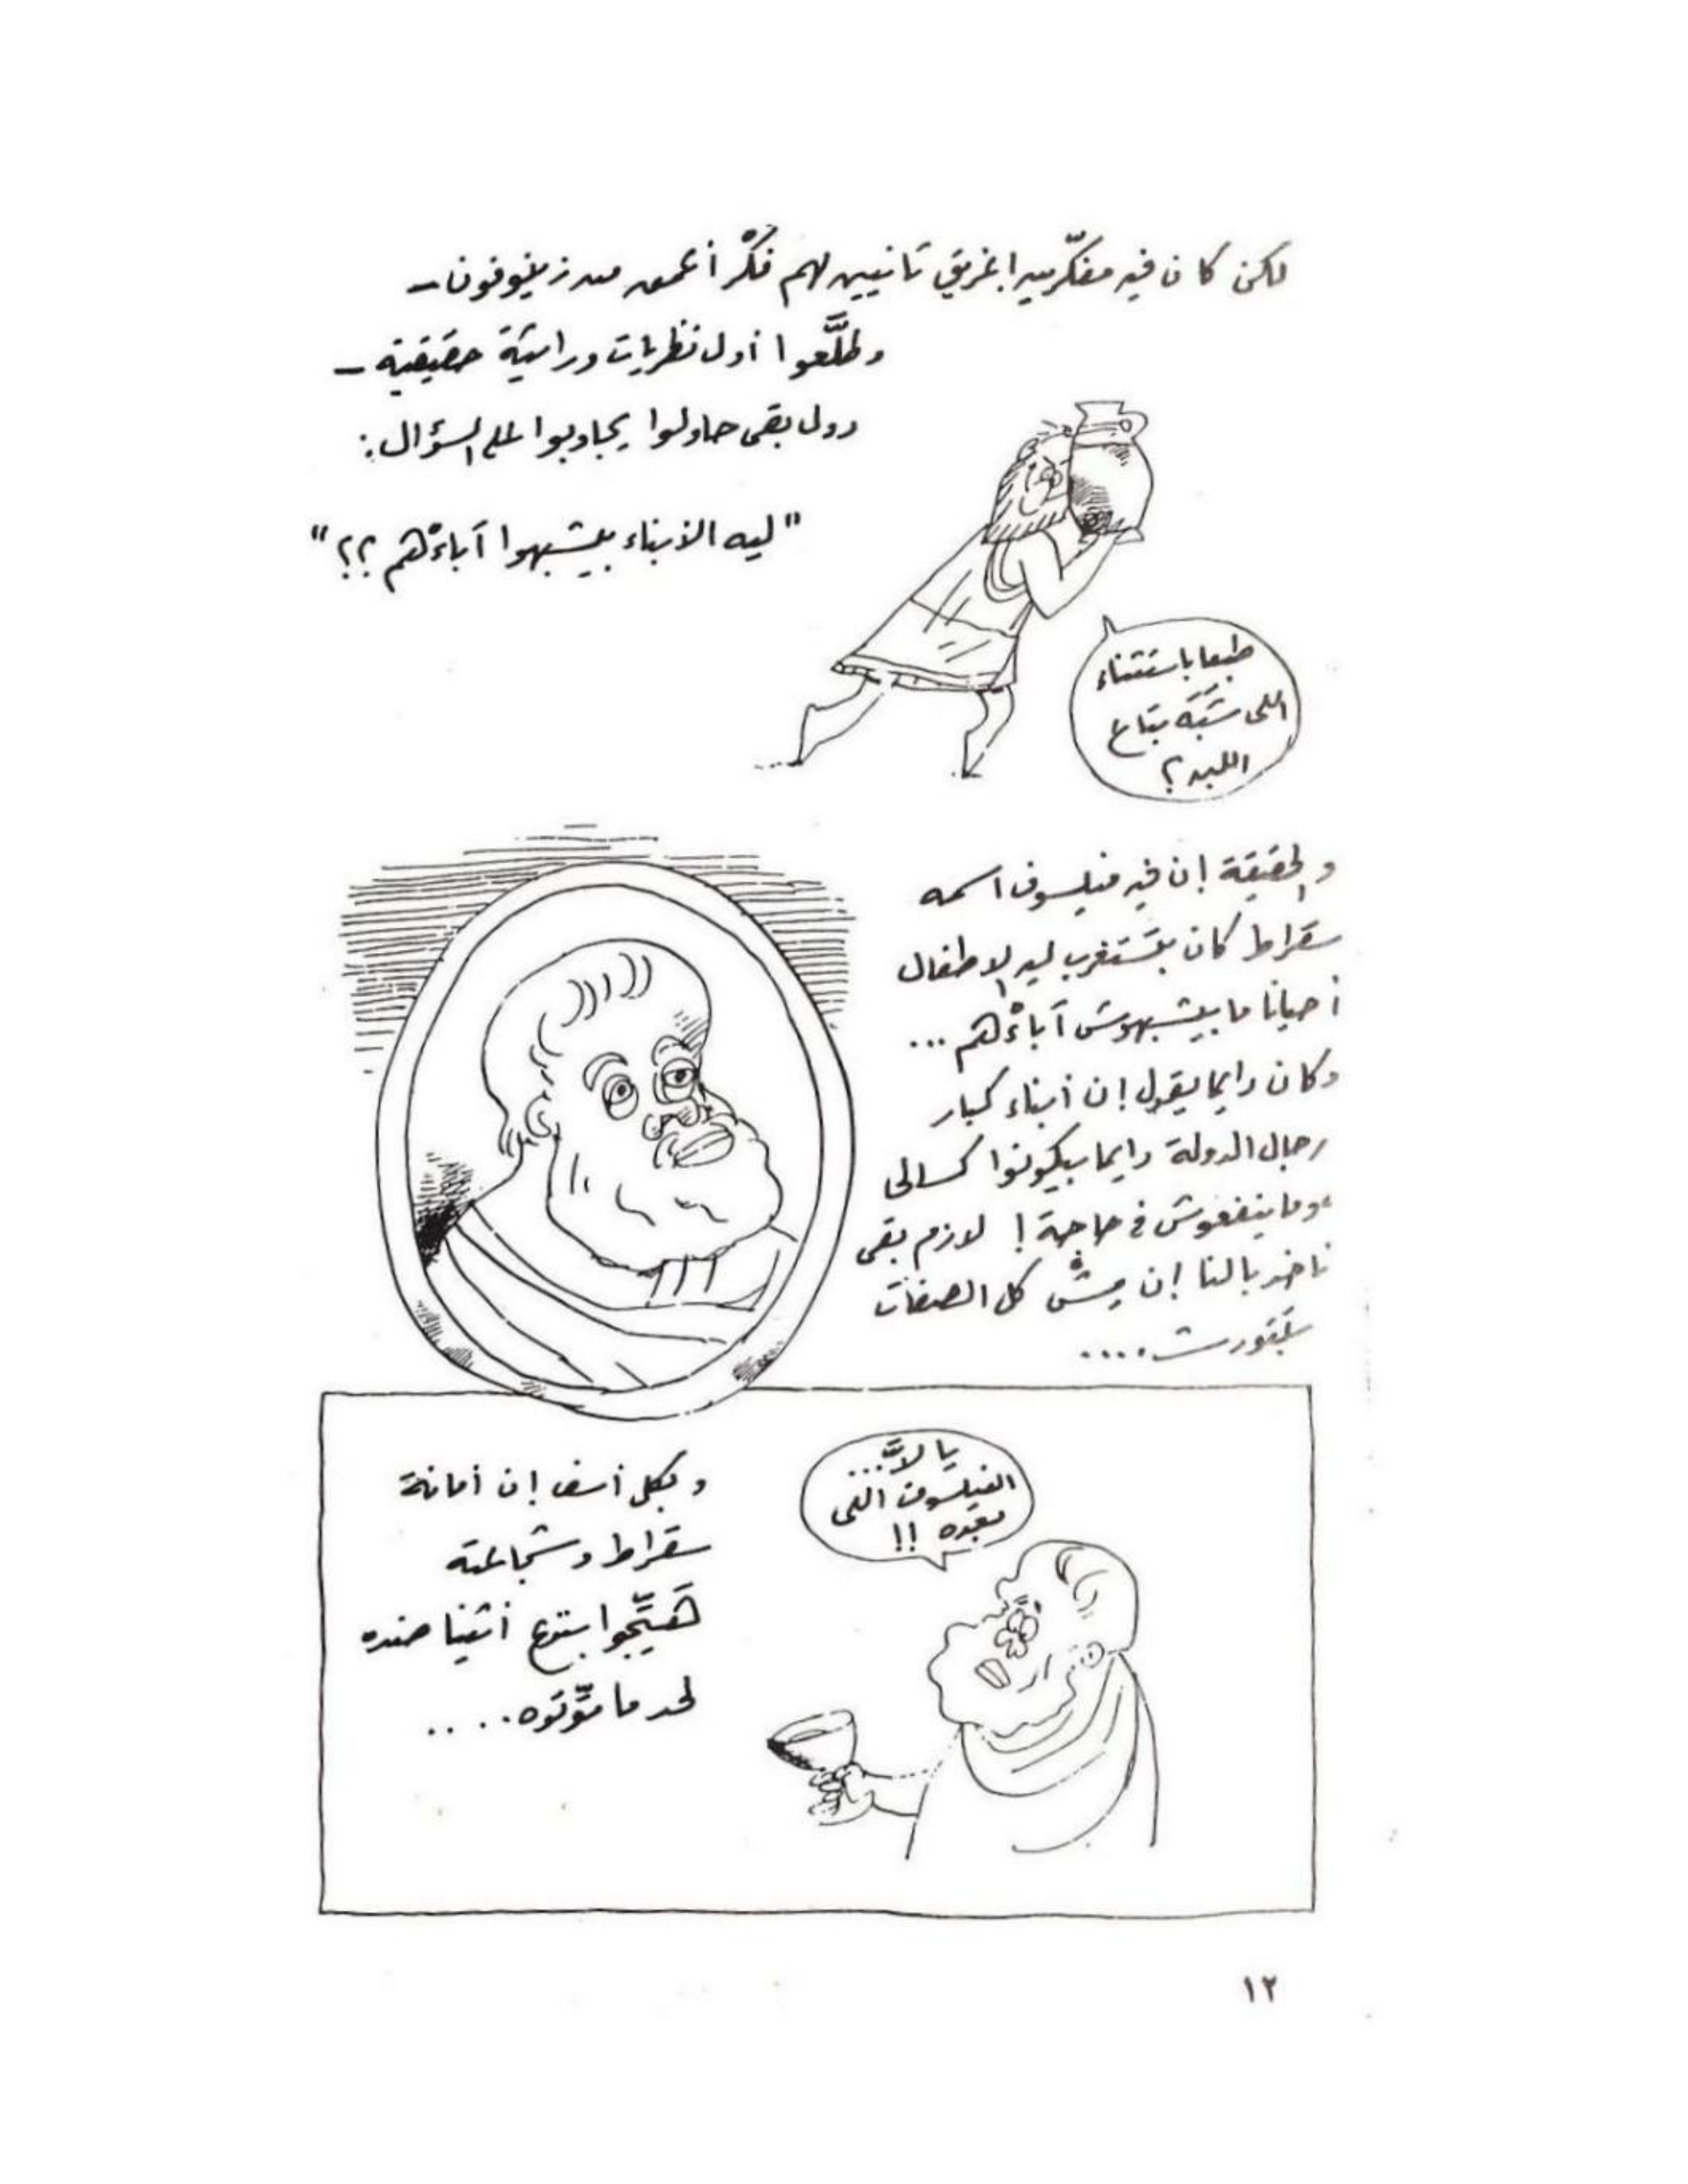 لكن كان فيه مفكّرين إغريق تانيين لهم فكْر أعمق من زينوفون ــ
وطلَّعوا أول نظريات وراثيَّة حقيقية ــ
دول بقى حاولوا يجاوبوا على السؤال:
"ليه الأبناء بيشبهوا آباءْهم ؟؟"
طبعا باستثناء
اللى شَبَه بتاع
اللبن؟
والحقيقة إن فيه فيلسوف اسمه
سقراط كان بيَستغرب ليه الأطفال
أحيانًا ما بيشبهوش آباءْهم ...
وكان دايما يقول إن أبناء كبار
رجال الدولة دايما بيكونوا كسالى
وما ينفعوش فى حاجة! لازم بقى
ناخد بالنا إن مِش كل الصفات
بتتورث ....
وبكل أسف إن أمانة
سقراط وشجاعته
هَيِّجوا بتوع أثينا ضده
لحد ما مَوِّتوه....
يا لاَّ...
الفيلسوف اللى
بعده !!
١٢